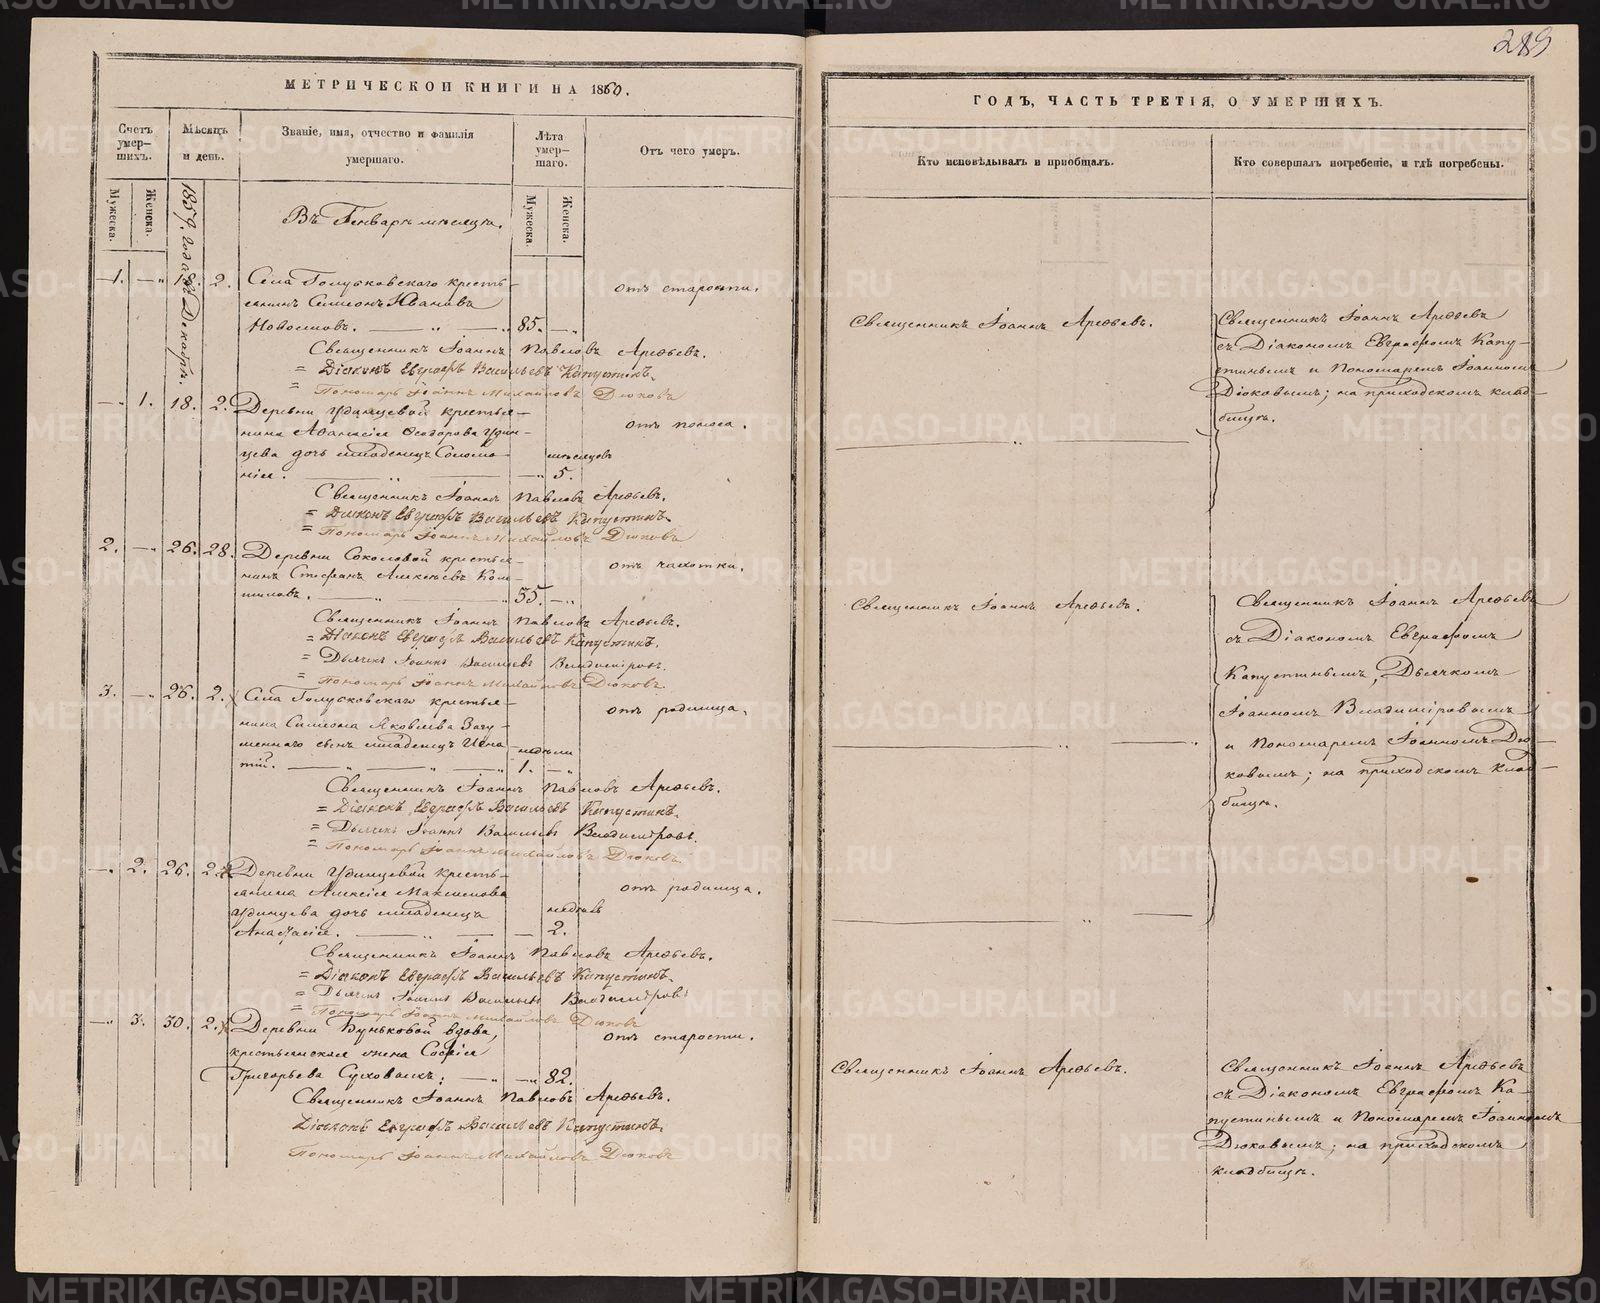 289
МЕТРИЧЕСКОЙ КНИГИ НА 1860.
Счетъ умер-шихъ.
Мѣсяцъ и день.
Званіе, имя, отчество и фамилія умершаго.
Лѣта умер-шаго.
Отъ чего умеръ.
Мужеска.
Женска.
1859. года Декабря.
Въ Генварѣ мѣсяцѣ.
Мужеска.
Женска.
1. — 18. 2. Села Голубковскаго кресть-
янинъ Симеонъ Ивановъ
Новоселовъ. 85. —
отъ старости.
Священникъ Іоаннъ Павловъ Арефьевъ.
= Діаконъ Евграфъ Васильевъ Капустинъ.
= Пономарь Іоаннъ Михайловъ Дюковъ
— 1. 18. 2. Деревни Удинцевой крестья-
нина Афанасія Ѳеодорова Удин-
цева дочь младенецъ Соломо-
нія. мѣсяцовъ 5.
отъ поноса.
Священникъ Іоаннъ Павловъ Арефьевъ.
= Діаконъ Евграфъ Васильевъ Капустинъ.
= Пономарь Іоаннъ Михайловъ Дюковъ
2. — 26. 28. Деревни Соколовой крестья-
нинъ Стефанъ Алексѣевъ Ком-
шиловъ. 55. —
отъ чахотки.
Священникъ Іоаннъ Павловъ Арефьевъ.
= Діаконъ Евграфъ Васильевъ Капустинъ.
= Дьячекъ Іоаннъ Васильевъ Владиміровъ.
= Пономарь Іоаннъ Михайловъ Дюковъ.
3. — 26. 2. Села Голубковскаго крестья-
нина Симеона Яковлева Загу-
меннаго сынъ младенецъ Игна-
тій. недѣли 1. —
отъ родимца.
Священникъ Іоаннъ Павловъ Арефьевъ.
= Діаконъ Евграфъ Васильевъ Капустинъ.
= Дьячекъ Іоаннъ Васильевъ Владиміровъ.
= Пономарь Іоаннъ Михайловъ Дюковъ.
— 2. 26. Деревни Удинцевой кресть-
янина Алексія Максимова
Удинцева дочь младенецъ
Анастасія. недѣль 2.
отъ родимца.
Священникъ Іоаннъ Павловъ Арефьевъ.
= Діаконъ Евграфъ Васильевъ Капустинъ.
= Дьячекъ Іоаннъ Васильевъ Владиміровъ
= Пономарь Іоаннъ Михайловъ Дюковъ
— 3. 30. Деревни Буньковой вдова,
крестьянская жена Софія
Григорьева Суховаскъ; — 82.
отъ старости.
Священникъ Іоаннъ Павловъ Арефьевъ.
Діаконъ Евграфъ Васильевъ Капустинъ.
Пономарь Іоаннъ Михайловъ Дюковъ
ГОДЪ, ЧАСТЬ ТРЕТІЯ, О УМЕРШИХЪ.
Кто исповѣдывалъ и пріобщалъ.
Кто совершалъ погребеніе, и гдѣ погребены.
Священникъ Іоаннъ Арефьевъ.
Священникъ Іоаннъ Арефьевъ
съ Діакономъ Евграфомъ Капу-
стинымъ и Пономаремъ Іоанномъ
Дюковымъ; на приходскомъ клад-
бищѣ.
Священникъ Іоаннъ Арефьевъ.
Священникъ Іоаннъ Арефьевъ
съ Діакономъ Евграфомъ
Капустинымъ, Дьячкомъ
Іоанномъ Владиміровымъ
и Пономаремъ Іоанномъ Дю-
ковымъ; на приходскомъ клад-
бищѣ.
Священникъ Іоаннъ Арефьевъ.
Священникъ Іоаннъ Арефьевъ
съ Діакономъ Евграфомъ Ка-
пустинымъ и Пономаремъ Іоанномъ
Дюковымъ; на приходскомъ
кладбищѣ.
METRIKI.GASO-URAL.RU